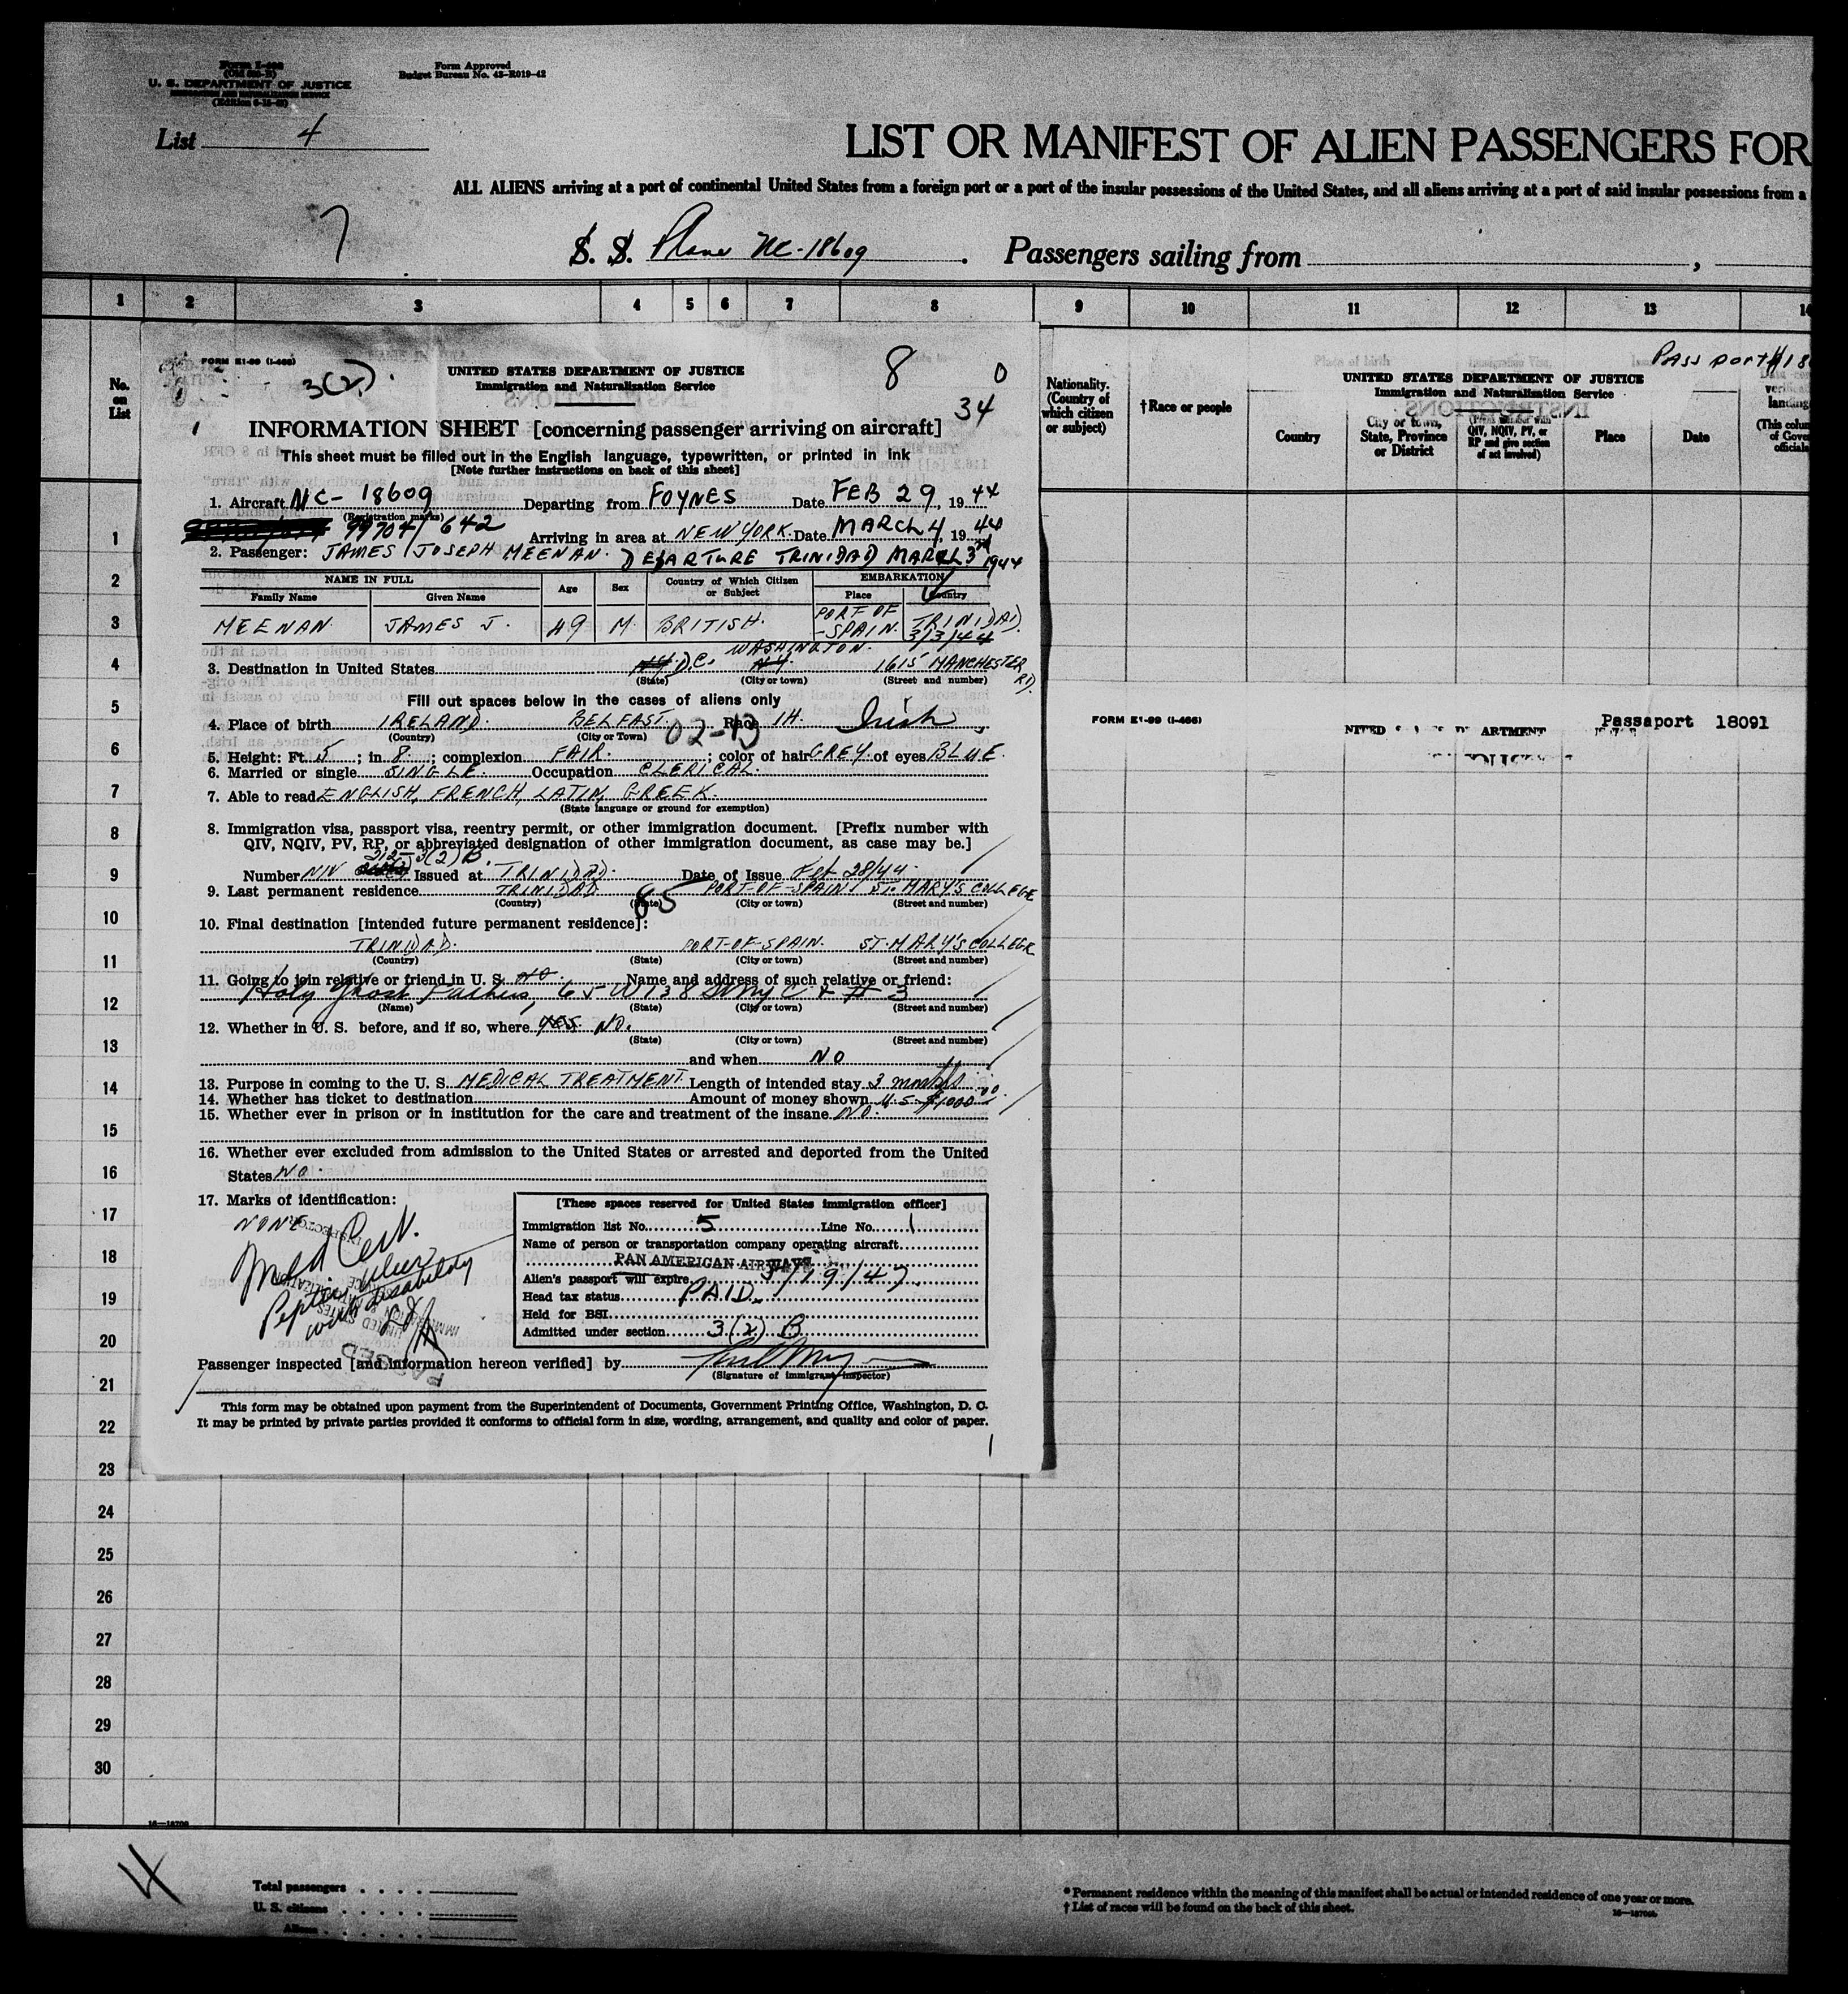 Form I-466
(Old 500-B)
U. S. DEPARTMENT OF JUSTICE
IMMIGRATION AND NATURALIZATION SERVICE
Form Approved
Budget Bureau No. 43-R019-42
List 4
LIST OR MANIFEST OF ALIEN PASSENGERS FOR
ALL ALIENS arriving at a port of continental United States from a foreign port or a port of the insular possessions of the United States, and all aliens arriving at a port of said insular possessions from a
7
S. S. Plane NC-18609. Passengers sailing from ,
1 2 3 4 5 6 7 8 9 10 11 12 13 14
No. on List
FORM E1-99 (I-466)
3(2).
UNITED STATES DEPARTMENT OF JUSTICE
Immigration and Naturalization Service
8 0
34
INFORMATION SHEET [concerning passenger arriving on aircraft]
This sheet must be filled out in the English language, typewritten, or printed in ink
[Note further instructions on back of this sheet]
1. Aircraft NC-18609 Departing from FOYNES Date FEB 29, 1944
(Registration marks)
99704/642 Arriving in area at NEW YORK. Date MARCH 4, 1944
2. Passenger: JAMES JOSEPH MEENAN. DEPARTURE TRINIDAD MARCH 3rd 1944
NAME IN FULL Age Sex Country of Which Citizen or Subject EMBARKATION
Family Name Given Name Place Country
MEENAN JAMES J. 49 M. BRITISH. PORT OF -SPAIN. TRINIDAD. 3/3/44
3. Destination in United States NY D.C. WASHINGTON. NY. 1615 MANCHESTER RD.
(State) (City or town) (Street and number)
Fill out spaces below in the cases of aliens only
4. Place of birth IRELAND. BELFAST. 02-13 Race IH. Irish
(Country) (City or Town)
5. Height: Ft. 5; in 8.; complexion FAIR.; color of hair GREY. of eyes BLUE.
6. Married or single SINGLE. Occupation CLERICAL.
7. Able to read ENGLISH, FRENCH, LATIN, GREEK.
(State language or ground for exemption)
8. Immigration visa, passport visa, reentry permit, or other immigration document. [Prefix number with
QIV, NQIV, PV, RP, or abbreviated designation of other immigration document, as case may be.]
Number NIV 212-3(2)B. Issued at TRINIDAD. Date of Issue Feb 28/44.
9. Last permanent residence TRINIDAD 85 PORT-OF-SPAIN ST. MARY'S COLLEGE
(Country) (State) (City or town) (Street and number)
10. Final destination [intended future permanent residence]:
TRINIDAD. PORT-OF-SPAIN. ST. MARY'S COLLEGE
(Country) (State) (City or town) (Street and number)
11. Going to join relative or friend in U. S. NO. Name and address of such relative or friend:
Holy Ghost Fathers, 65 W 138 St NY C
(Name) (State) (City or town) (Street and number)
12. Whether in U. S. before, and if so, where YES. NO.
(State) (City or town) (Street and number)
and when NO
13. Purpose in coming to the U. S. MEDICAL TREATMENT Length of intended stay 3 months
14. Whether has ticket to destination Amount of money shown U.S. $1000.00
15. Whether ever in prison or in institution for the care and treatment of the insane. NO.
16. Whether ever excluded from admission to the United States or arrested and deported from the United
States NO.
17. Marks of identification:
NONE
Med Cert.
Peptic ulcer
with disability
PASSED
[These spaces reserved for United States immigration officer]
Immigration list No. 5 Line No. 1
Name of person or transportation company operating aircraft
PAN AMERICAN AIRWAYS
Alien's passport will expire 3/19/47.
Head tax status PAID.
Held for BSI
Admitted under section 3(2) B
Passenger inspected [and information hereon verified] by
(Signature of immigrant inspector)
This form may be obtained upon payment from the Superintendent of Documents, Government Printing Office, Washington, D. C.
It may be printed by private parties provided it conforms to official form in size, wording, arrangement, and quality and color of paper.
1
Nationality. (Country of which citizen or subject)
†Race or people
Passport #18
UNITED STATES DEPARTMENT OF JUSTICE
Immigration and Naturalization Service
INSTRUCTIONS
Country
City or town, State, Province or District
QIV, NQIV, PV, or RP and give section of act involved)
Place Date
FORM E1-99 (I-466)
Passaport 18091
1
2
3
4
5
6
7
8
9
10
11
12
13
14
15
16
17
18
19
20
21
22
23
24
25
26
27
28
29
30
4
Total passengers
U. S. citizens
Aliens
* Permanent residence within the meaning of this manifest shall be actual or intended residence of one year or more.
† List of races will be found on the back of this sheet.